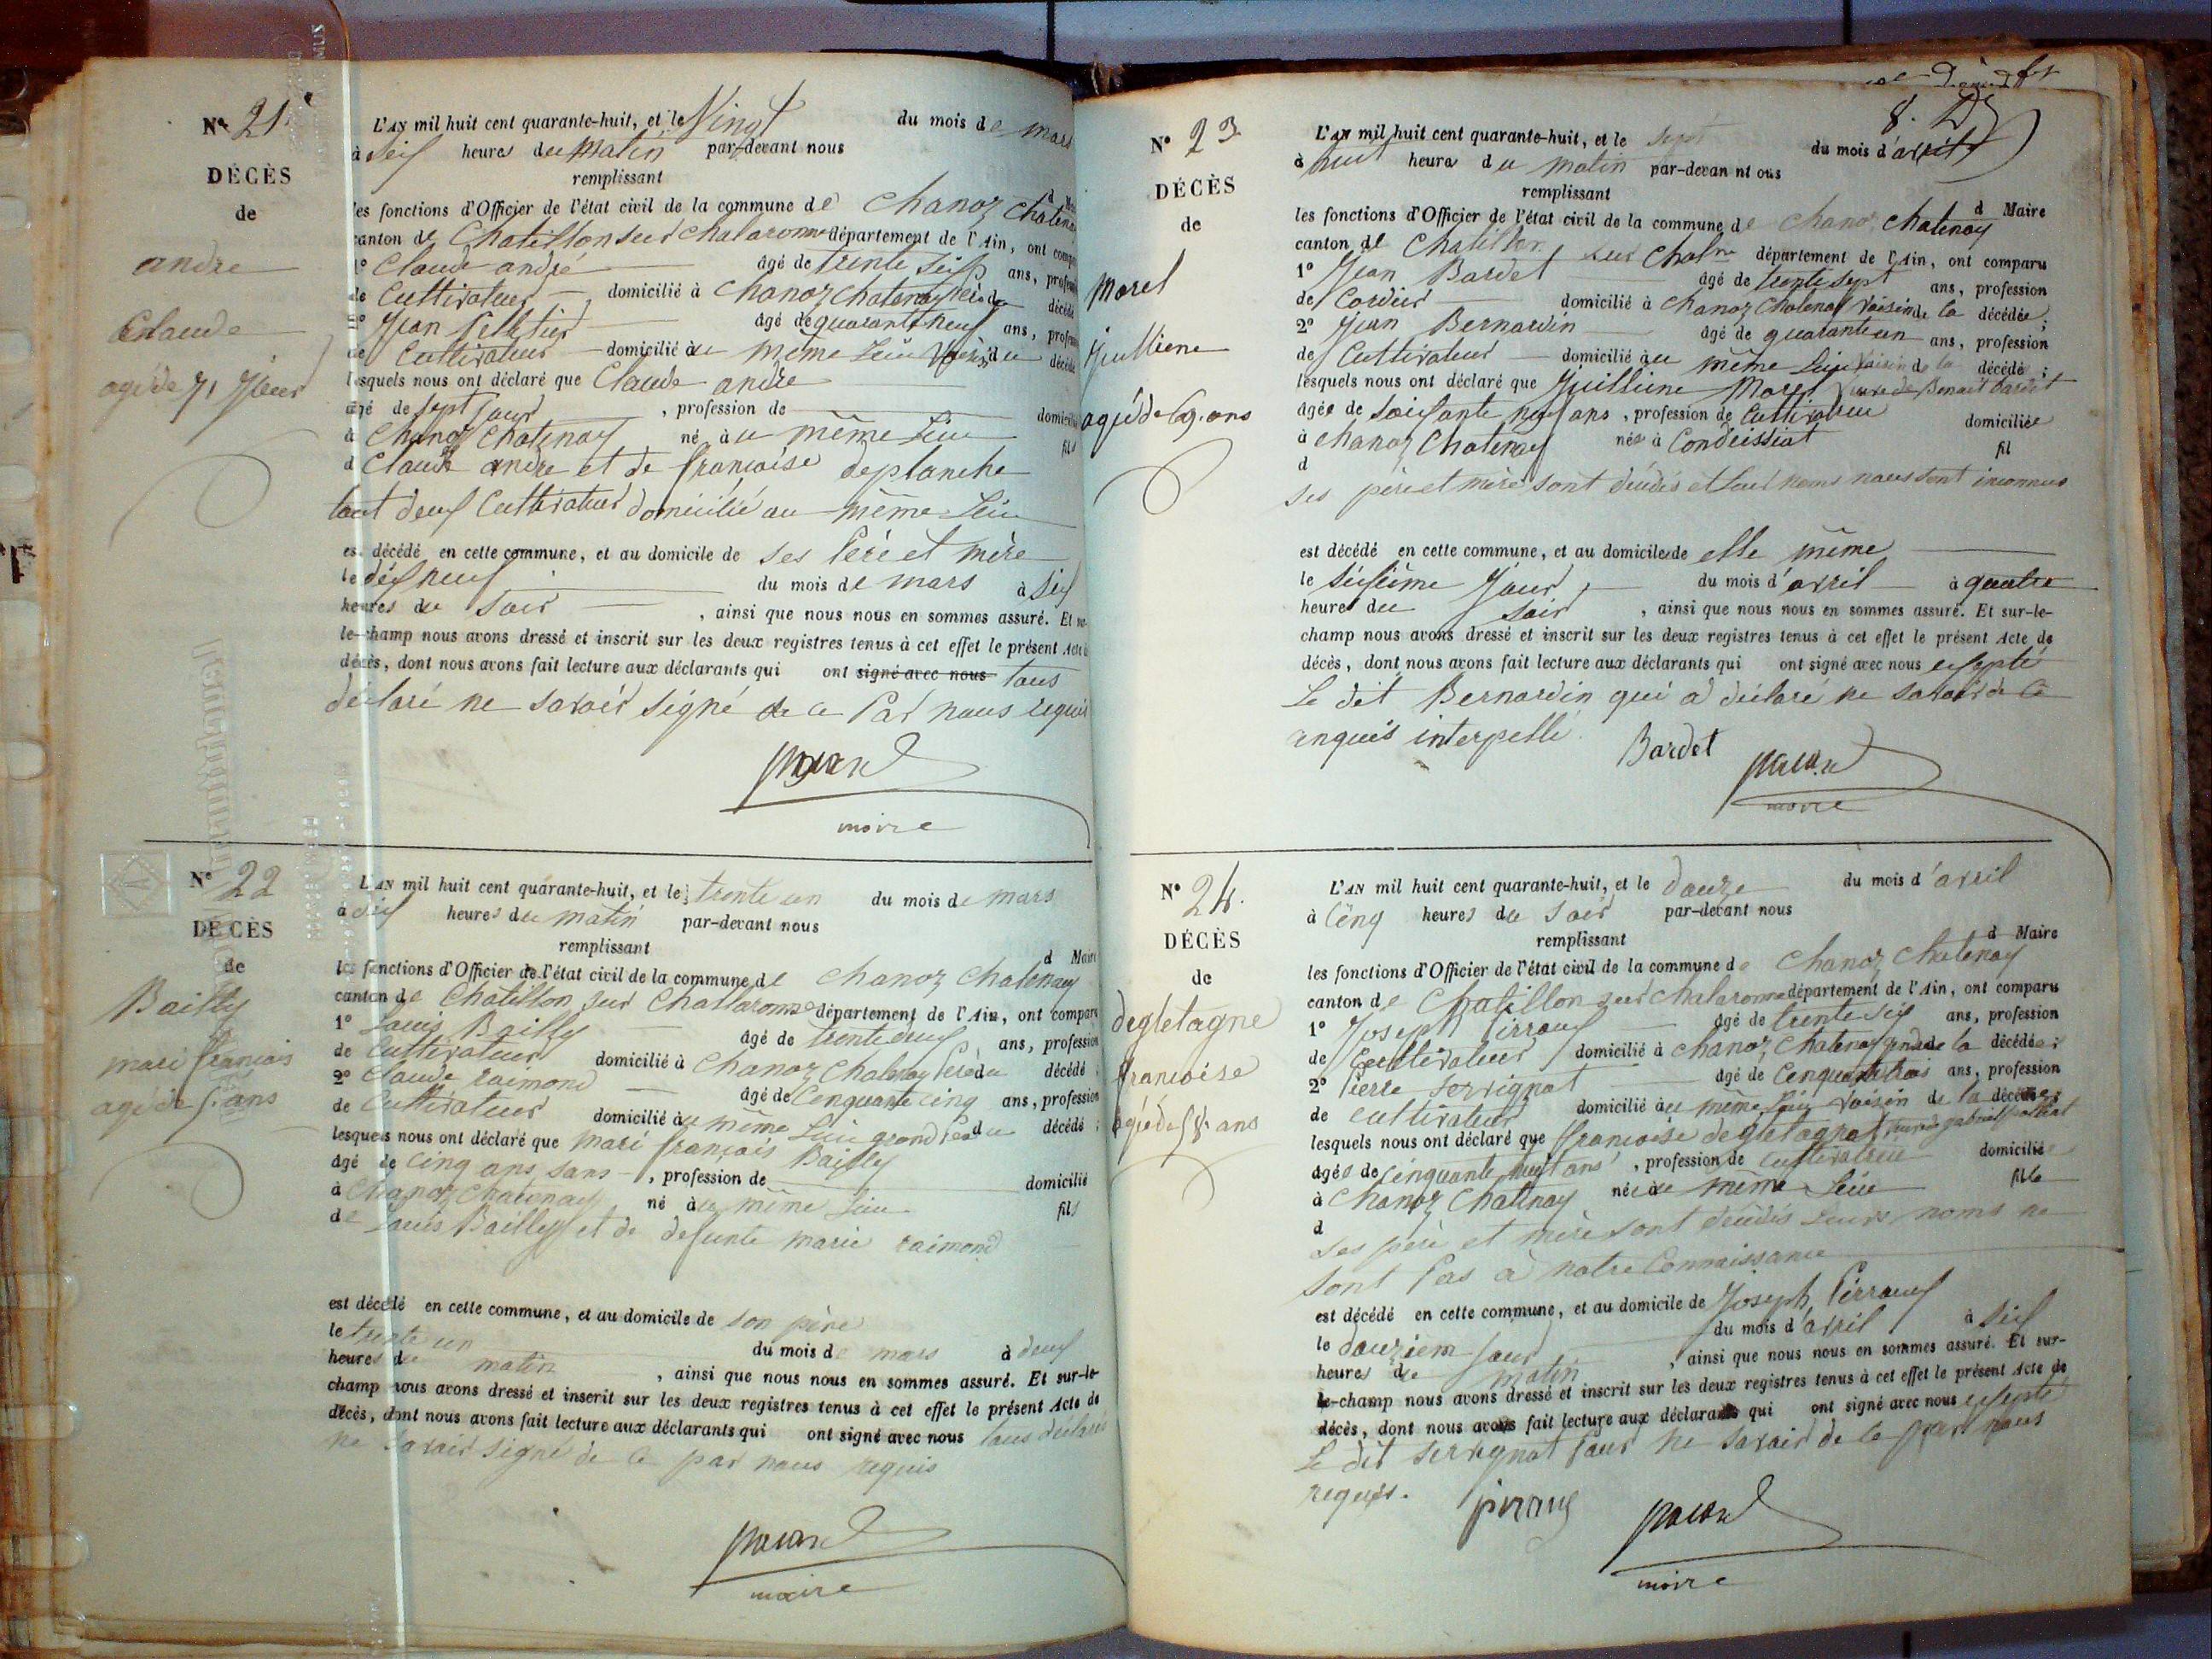 N° 21.
DÉCÈS
de
andre
Claude
agé de 7 Jour
L'AN mil huit cent quarante-huit, et le Vingt du mois de mars
à Six heures du Matin par-devant nous
remplissant
d Maire
les fonctions d'Officier de l'état civil de la commune de Chanoz Chatenay
canton de Chatillon sur Chalaronne département de l'Ain, ont comparu
1° Claude andré âgé de trente ans, profession
de Cultivateur domicilié à Chanoz Chatenay Père du décédé
2° Jean Pelletier âgé de quarante neuf ans, profession
de Cultivateur domicilié au même Lieu Voisin du décédé
lesquels nous ont déclaré que Claude andre
âgé de Sept Jour , profession de domicilié
à Chanoz Chatenay né au même Lieu fils
d Claude andre et de françoise deplanche
tout deux Cultivateur domicilié au même Lieu
est décédé en cette commune, et au domicile de Ses Père et mère
le dix neuf du mois de mars à Six
heures du Soir , ainsi que nous nous en sommes assuré. Et sur-
le-champ nous avons dressé et inscrit sur les deux registres tenus à cet effet le présent Acte de
décès, dont nous avons fait lecture aux déclarants qui ont signé avec nous tous
déclaré ne Savoir Signé de ce Par nous requis
maire
N° 22
DÉCÈS
de
Bailly
mari françois
agé de 5. ans
L'AN mil huit cent quarante-huit, et le trente un du mois de mars
à Six heures du matin par-devant nous
remplissant
d Maire
les fonctions d'Officier de l'état civil de la commune de Chanoz Chatenay
canton de Chatillon sur Challaronne département de l'Ain, ont comparu
1° Louis Bailly âgé de trente deux ans, profession
de Cultivateur domicilié à Chanoz Chatenay Père du décédé ;
2° Claude raimond âgé de Cinquante cinq ans, profession
de Cultivateur domicilié au même Lieu grand Père du décédé ;
lesquels nous ont déclaré que mari françois Bailly
âgé de Cinq ans sans , profession de domicilié
à Chanoz Chatenay né au même Lieu fils
de Louis Bailly et de defunte marie raimond
est décédé en cette commune, et au domicile de Son père
le trente un du mois de mars à deux
heures du matin , ainsi que nous nous en sommes assuré. Et sur-le-
champ nous avons dressé et inscrit sur les deux registres tenus à cet effet le présent Acte de
décès, dont nous avons fait lecture aux déclarants qui ont signé avec nous tous déclaré
ne Savoir Signé de ce par nous requis
maire
8. D
N° 23
DÉCÈS
de
Morel
Julliene
agé de 69. ans
L'AN mil huit cent quarante-huit, et le Sept du mois d'avril
à huit heures du matin par-devan nt ous
remplissant
d Maire
les fonctions d'Officier de l'état civil de la commune de Chanoz Chatenay
canton de Chatillon sur Chalne département de l'Ain, ont comparu
1° Jean Bardet âgé de trente Sept ans, profession
de Cordier domicilié à Chanoz Chatenay Voisin de la décédée ;
2° Jean Bernardin âgé de quarante un ans, profession
de Cultivateur domicilié au même Lieu Voisin de la décédé ;
lesquels nous ont déclaré que Jullienne Morel Veuve de Benoit Bardet
âgée de Soixante neuf ans , profession de Cultivatrice domiciliée
à Chanoz Chatenay née à Condeissiat fil
d
Ses père et mère sont décédés et Leur noms nous sont inconnus
est décédé en cette commune, et au domicile de elle même
le Sixsième Jour du mois d'avril à quatre
heures du Soir , ainsi que nous nous en sommes assuré. Et sur-le-
champ nous avons dressé et inscrit sur les deux registres tenus à cet effet le présent Acte de
décès, dont nous avons fait lecture aux déclarants qui ont signé avec nous excepté
Le dit Bernardin qui a déclaré ne Savoir de ce
anquis interpellé.
Bardet
maire
N° 24.
DÉCÈS
de
degletagne
françoise
agée de 58. ans
L'AN mil huit cent quarante-huit, et le douze du mois d'avril
à Cinq heures du Soir par-devant nous
remplissant
d Maire
les fonctions d'Officier de l'état civil de la commune de Chanoz Chatenay
canton de Chatillon sur Chalaronne département de l'Ain, ont comparu
1° Joseph Pirroux âgé de trente Six ans, profession
de Cultivateur domicilié à Chanoz Chatenay gendre de la décédée ;
2° Pierre Servignat âgé de Cinquante trois ans, profession
de cultivateur domicilié au même Lieu Voisin de la décédée ;
lesquels nous ont déclaré que françoise degletagne
âgée de Cinquante huit ans , profession de Cultivatrice domiciliée
à Chanoz Chatenay née au même Lieu fille
d
Ses père et mère sont décédés Leurs noms ne
sont Pas à notre Connaissance
est décédé en cette commune, et au domicile de Joseph Pirroux
le douziem Jour du mois d'avril à Six
heures du matin , ainsi que nous nous en sommes assuré. Et sur-
le-champ nous avons dressé et inscrit sur les deux registres tenus à cet effet le présent Acte de
décès, dont nous avons fait lecture aux déclarants qui ont signé avec nous excepté
Le dit Servignat Pour ne Savoir de ce par nous
requis.
maire